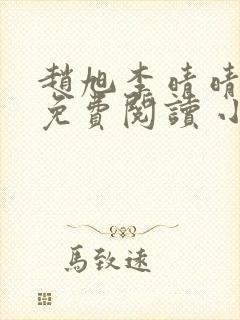 趙旭李晴晴
免費閱讀小
馬致遠